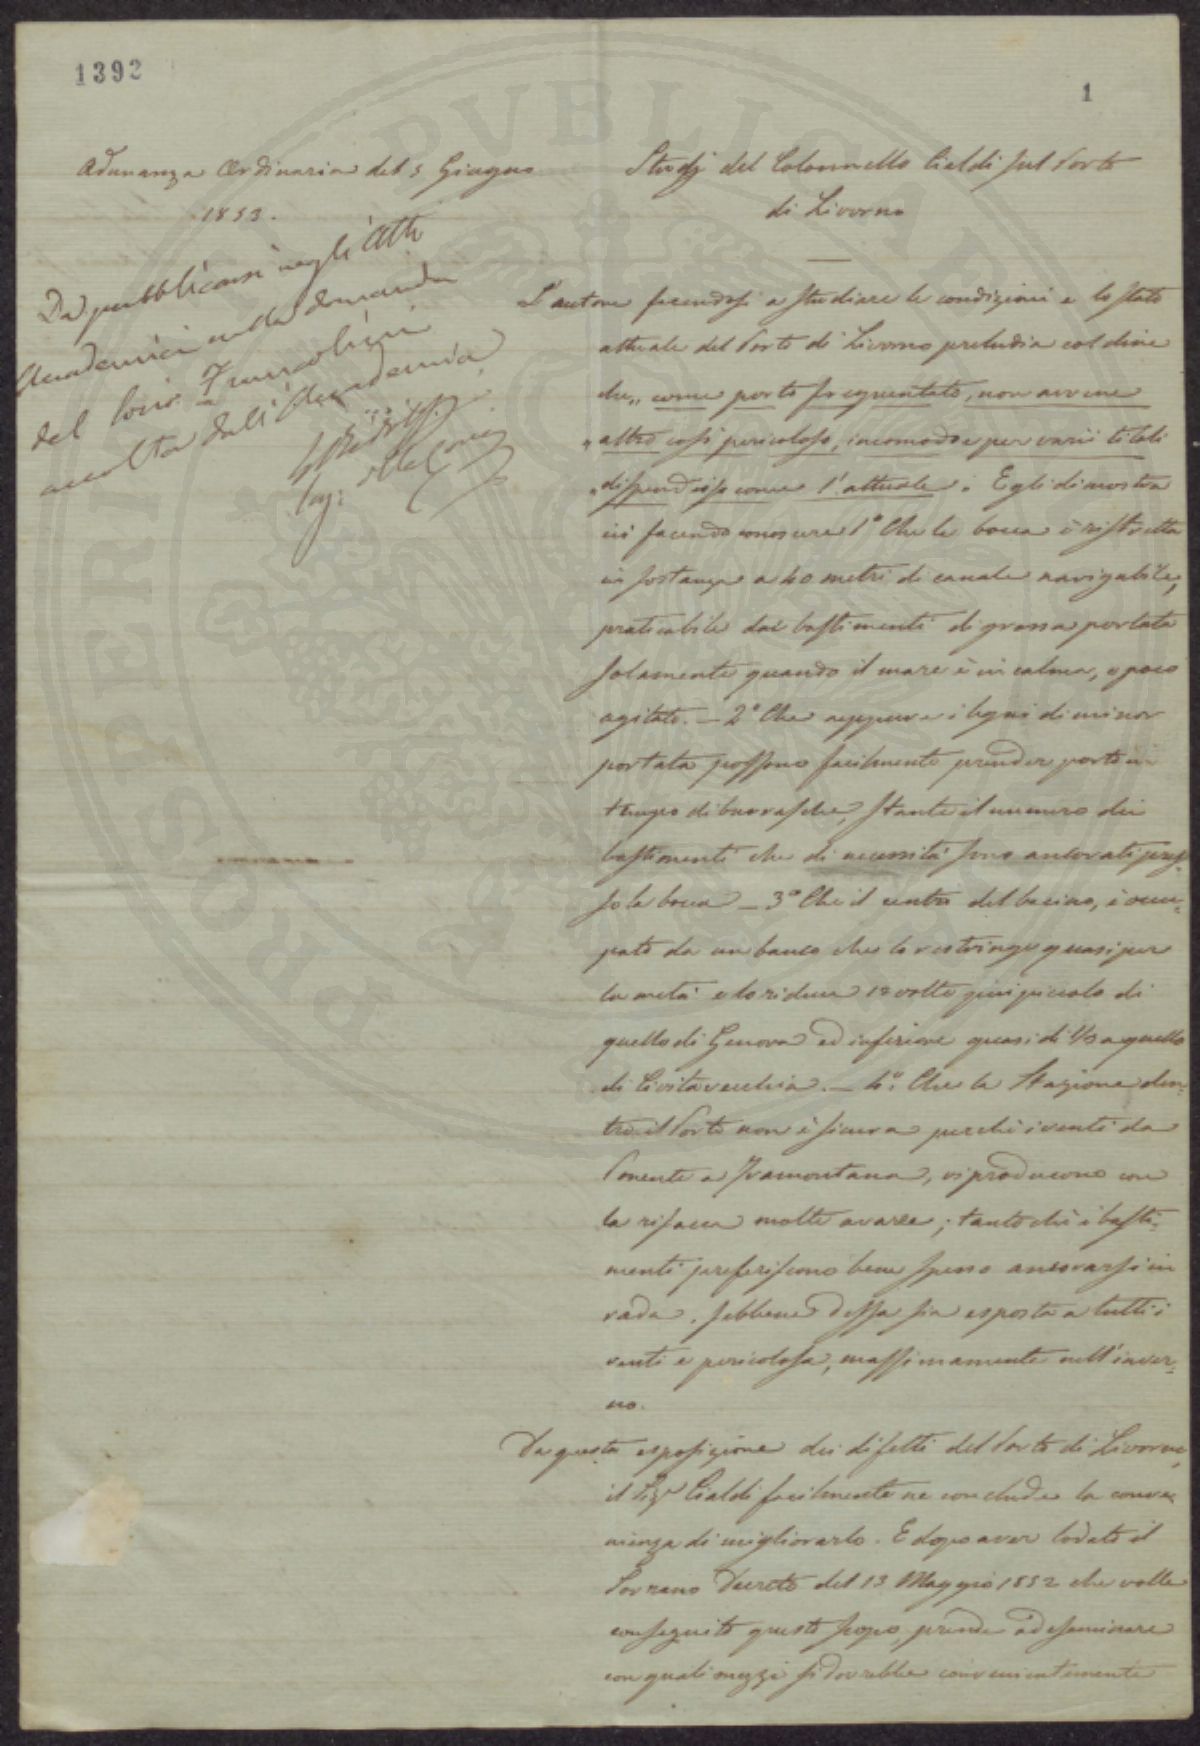 1392
1
Adunanza Ordinaria del 5 Giugno
1853.
Da pubblicarsi negli Atti
Accademici sulla domanda
del Socio Francolini
accolta dall'Accademia
Studj del Colonnello Cialdi sul Porto
di Livorno
L'autore facendosi a studiare le condizioni e lo stato
attuale del Porto di Livorno preludia col dire
che „ come porto frequentato, non avvene
„ altro così pericoloso, incomodo e per varii titoli
„ dispendioso come l'attuale „. Egli dimostra
ciò facendo conoscere 1° Che la bocca è ristretta
in sostanza a 40 metri di canale navigabile,
praticabile dai bastimenti di grossa portata
solamente quando il mare è in calma, o poco
agitato. — 2° Che neppure i legni di minor
portata possono facilmente prender porto in
tempo di burrasche, stante il numero dei
bastimenti che di necessità sono ancorati pres-
so la bocca — 3° Che il centro del bacino, è occu-
pato da un banco che lo restringe quasi per
la metà e lo riduce 12 volte più piccolo di
quello di Genova ed inferiore quasi di 1/3 a quello
di Civitavecchia. — 4° Che la stazione den-
tro il Porto non è sicura perchè i venti da
Ponente a Tramontana, vi producono con
la risacca molte avarie; tanto chè i basti-
menti preferiscono bene spesso ancorarsi in
rada, sebbene dessa sia esposta a tutti i
venti e pericolosa, massimamente nell'inver-
no.
Da questa esposizione dei difetti del Porto di Livorno,
il Sigr Cialdi facilmente ne conclude la conve-
nienza di migliorarlo. E dopo aver lodato il
Sovrano Decreto del 13 Maggio 1852 che volle
conseguito questo scopo, prende ad esaminare
con quali mezzi si dovrebbe convenientemente